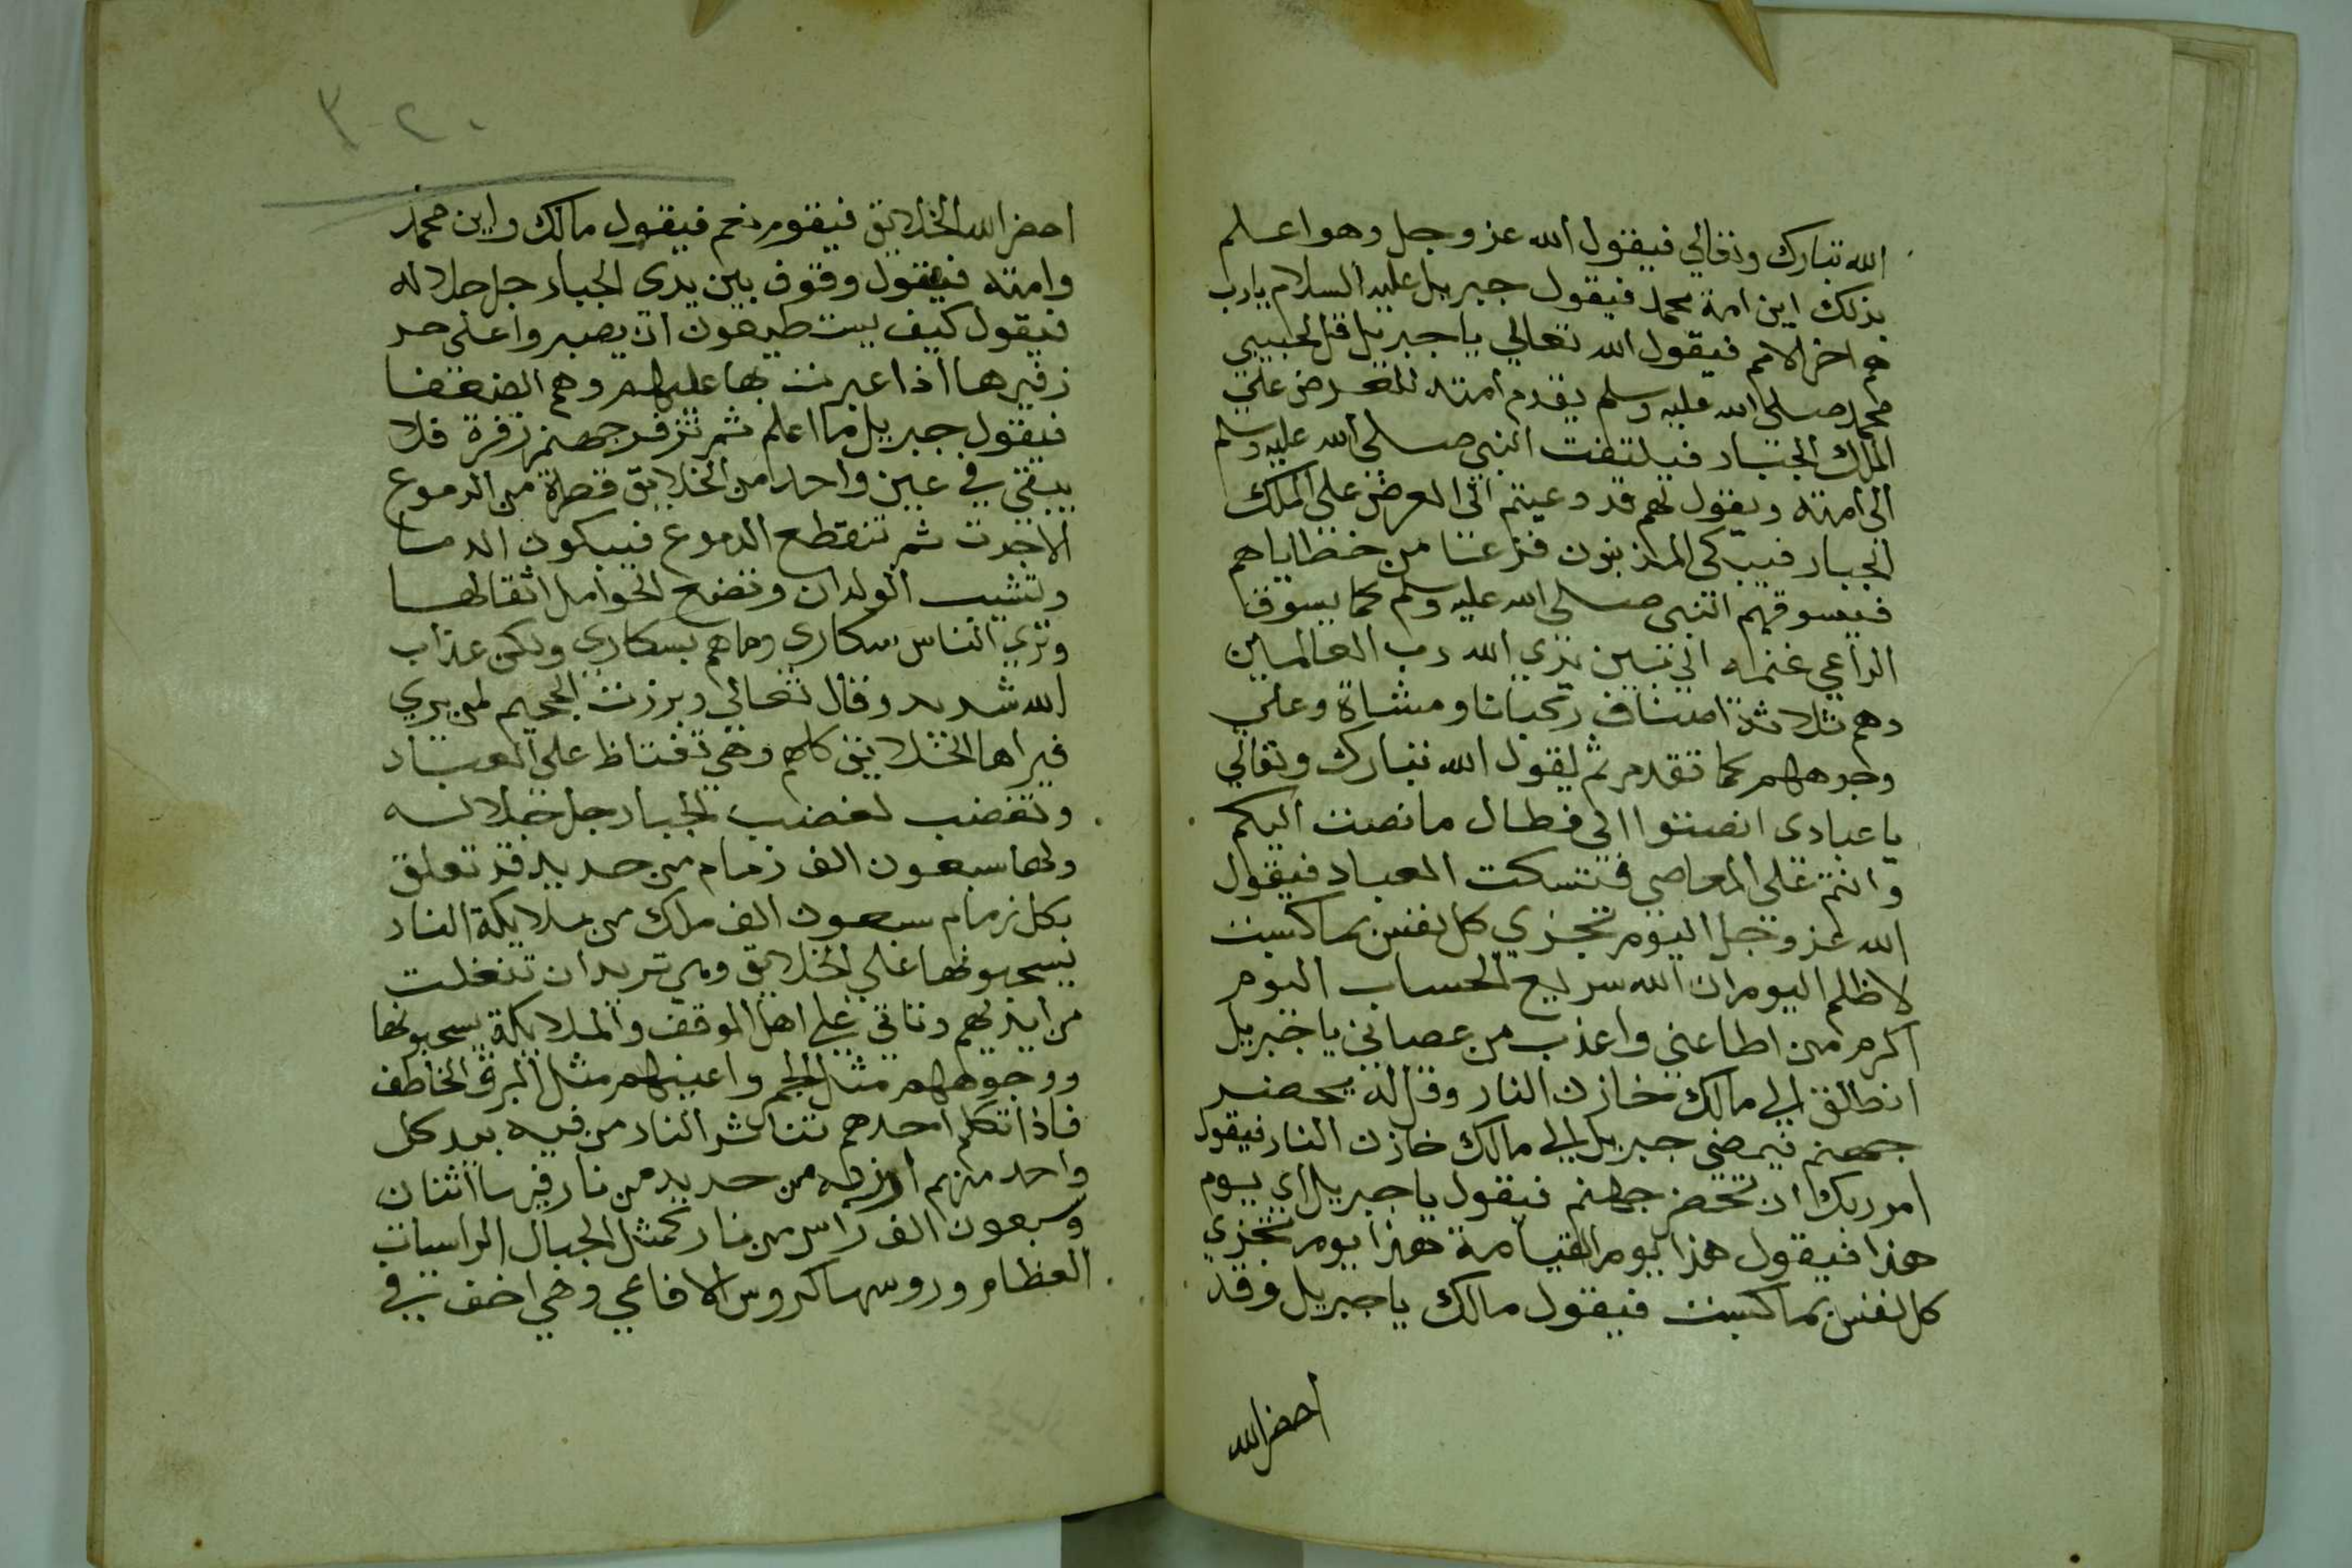 الله تبارك وتعالي فيقول الله عز وجل وهو اعلم
بذلك اين امة محمد فيقول جبريل عليه السلام يارب
هم اخر الامم فيقول الله تعالي يا جبريل قل لحبيبي
محمد صلي الله عليه وسلم يقدم امته للعرض علي
الملك الجبار فيلتفت النبي صلي الله عليه وسلم
الي امته ويقول لهم قد دعيتم الي العرض علي الملك
الجبار فيبكي المذنبون فزعا من خطاياهم
فيسوقهم النبي صلي الله عليه وسلم كما يسوق
الراعي غنمه الي بين يدي الله رب العالمين
وهم ثلاثة اصناف ركبانا ومشاة وعلي
وجوههم كما تقدم ثم يقول الله تبارك وتعالي
يا عبادي انصتوا الي فطال ما نصت اليكم
وانتم علي المعاصي فتسكت العباد فيقول
الله عز وجل اليوم تجزي كل نفس بما كسبت
لا ظلم اليوم ان الله سريع الحساب اليوم
اكرم من اطاعني واعذب من عصاني يا جبريل
انطلق الي مالك خازن النار وقل له يحضر
جهنم فيمضي جبريل الي مالك خازن النار فيقول
امر ربك ان تحضر جهنم فيقول يا جبريل اي يوم
هذا فيقول هذا يوم القيامة هذا يوم تجزي
كل نفس بما كسبت فيقول مالك يا جبريل وقد
احضر الله
٢٠٣
احضر الله الخلايق فيقول نعم فيقول مالك واين محمد
وامته فيقول وقوف بين يدي الجبار جل جلاله
فيقول كيف يستطيعون ان يصبروا علي حر
زفيرها اذا عبرت بها عليهم وهم الضعفا
فيقول جبريل ما اعلم ثم تزفر جهنم زفرة فلا
يبقي في عين واحد من الخلايق قطرة من الدموع
الا جرت ثم تنقطع الدموع فيبكون الدما
وتشيب الولدان وتضع الحوامل اثقالها
وتري الناس سكاري وما هم بسكاري ولكن عذاب
الله شديد وقال تعالي وبرزت الجحيم لمن يري
فيراها الخلايق كلهم وهي تغتاظ علي العباد
وتغضب لغضب الجبار جل جلاله
ولها سبعون الف زمام من حديد قد تعلق
بكل زمام سبعون الف ملك من ملايكة النار
يسحبونها علي الخلايق وهي تريد ان تنفلت
من ايديهم وتاتي علي اهل الموقف والملايكة يسحبونها
ووجوههم مثل الجمر واعينهم مثل البرق الخاطف
فاذا تكلم احدهم تتناثر النار من فيه بيد كل
واحد منهم من حديد من نار فيها اثنان
وسبعون الف راس من نار كمثل الجبال الراسيات
العظام وروسها كروس الافاعي وهي اخف في